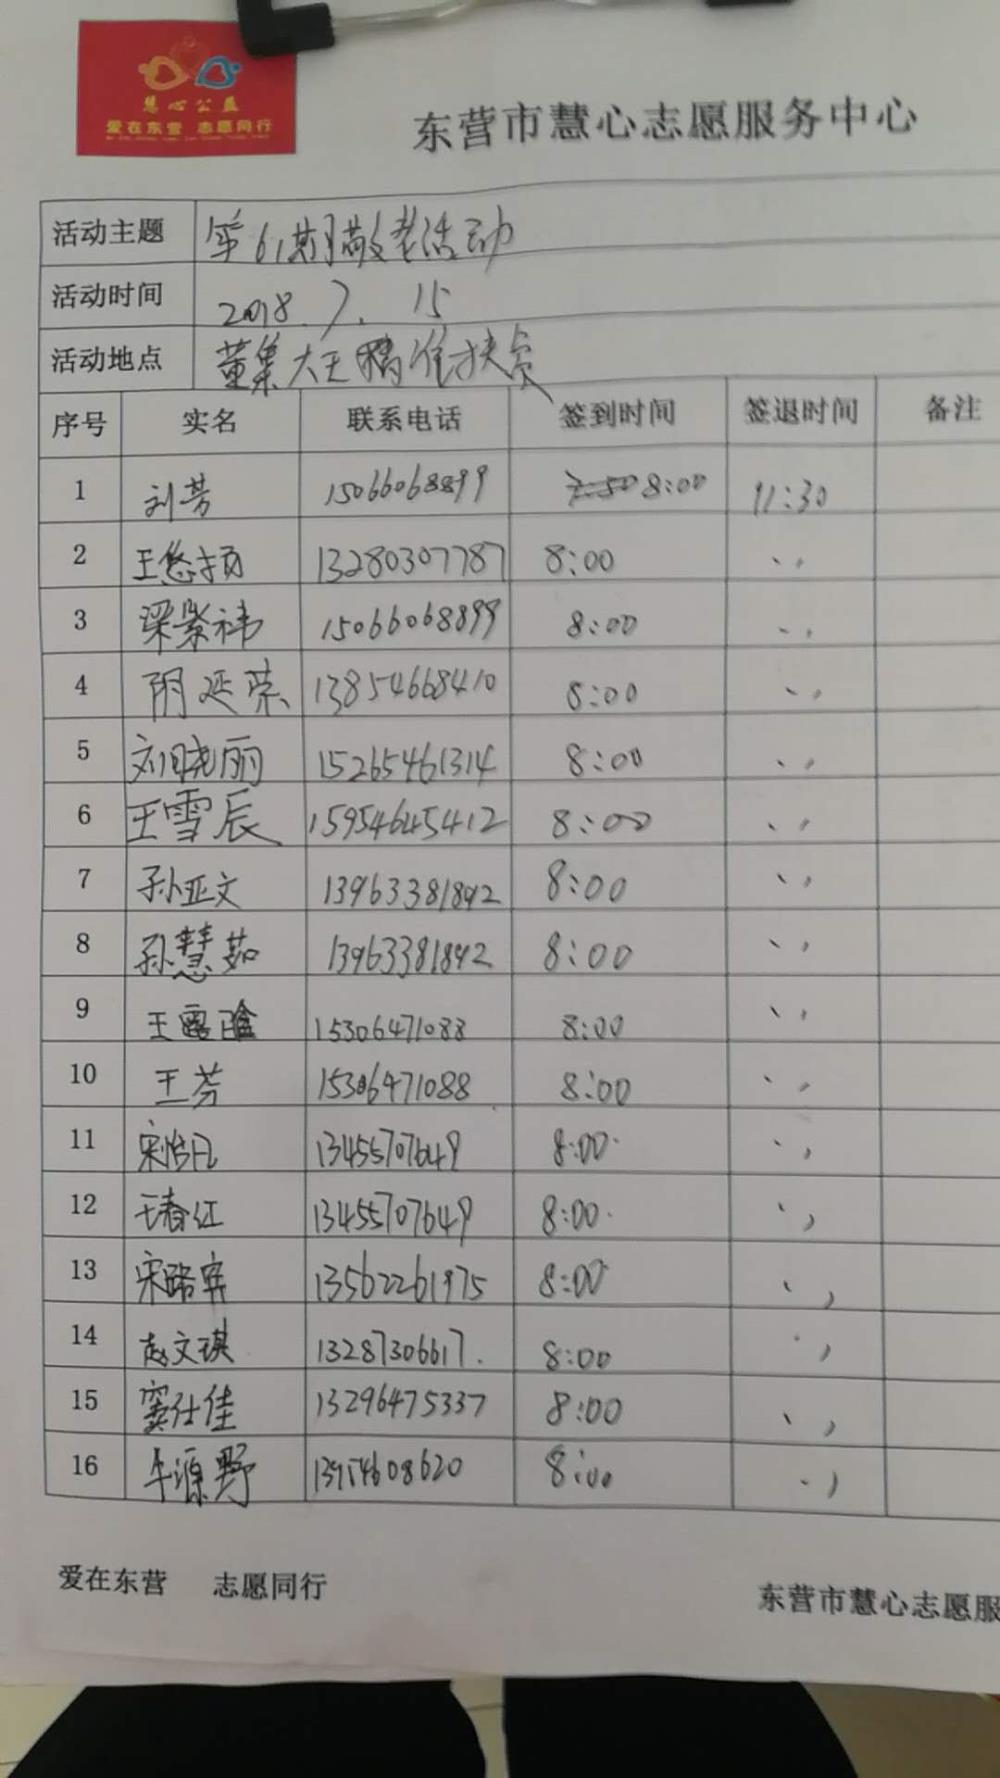 慧心公益
爱在东营 志愿同行
东营市慧心志愿服务中心
活动主题 第61期敬老活动
活动时间 2018.7.15
活动地点 董集大王精准扶贫
序号 实名 联系电话 签到时间 签退时间 备注
1 刘芳 15066068899 7:50 8:00 11:30
2 王悠扬 13280307787 8:00 、、
3 梁紫祎 15066068899 8:00 、、
4 阴延荣 13854668410 8:00 、、
5 刘晓丽 15265461314 8:00 、、
6 王雪辰 15954645412 8:00 、、
7 孙亚文 13963381892 8:00 、、
8 孙慧茹 13963381892 8:00 、、
9 王露 15306471088 8:00 、、
10 王芳 15306471088 8:00 、、
11 宋怡凡 13455707649 8:00 、、
12 王春红 13455707649 8:00 、、
13 宋 13562261975 8:00 、、
14 赵文琪 13287306617. 8:00 、、
15 窦仕佳 13296475337 8:00 、、
16 牛源野 13954608620 8:00 、、
爱在东营 志愿同行
东营市慧心志愿服